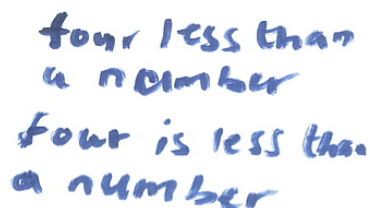 four less than
a number
four is less than
a number